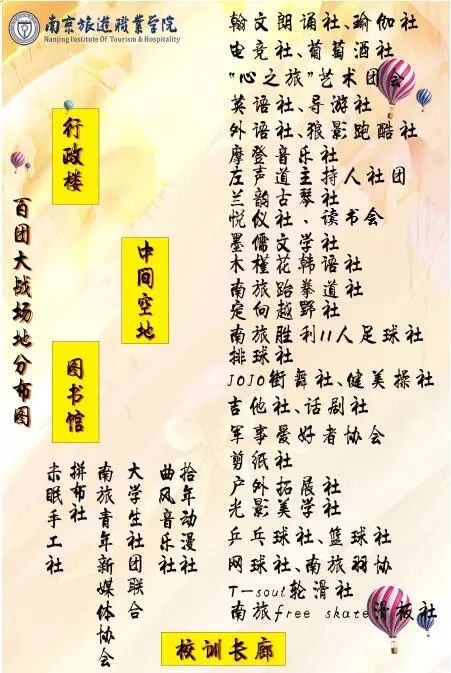 南京旅遊職業学院
Nanjing Institute Of Tourism & Hospitality
百团大战场地分布图
行政楼
中间空地
图书馆
翰文朗诵社、瑜伽社
电竞社、葡萄酒社
“心之旅”艺术团会
英语社、导游社
外语社、狼影跑酷社
摩登音乐社
左声道主持人社团
兰韵古琴社
悦仪社、读书会
墨儒文学社
木槿花韩语社
南旅跆拳道社
定向越野社
南旅胜利11人足球社
排球社
JOJO街舞社、健美操社
吉他社、话剧社
军事爱好者协会
剪纸社
户外拓展社
光影美学社
乒乓球社、篮球社
网球社、南旅羽协
T-soul轮滑社
南旅free skate滑板社
拾年动漫社
曲风音乐社
大学生社团联合
南旅青年新媒体协会
拼布社
未眠手工社
校训长廊